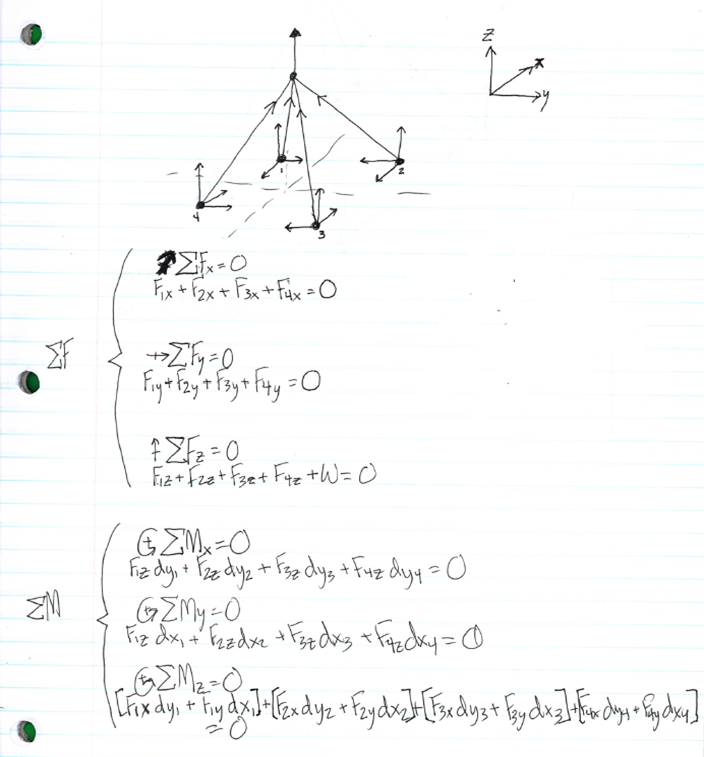 z
x
y
1
2
4
3
↑ ΣFx = 0
F1x + F2x + F3x + F4x = 0
ΣF
+→ ΣFy = 0
F1y + F2y + F3y + F4y = 0
+↑ ΣFz = 0
F1z + F2z + F3z + F4z + W = 0
↺+ ΣMx = 0
F1z dy1 + F2z dy2 + F3z dy3 + F4z dy4 = 0
ΣM
↺+ ΣMy = 0
F1z dx1 + F2z dx2 + F3z dx3 + F4z dx4 = 0
↺+ ΣMz = 0
[F1x dy1 + F1y dx1] + [F2x dy2 + F2y dx2] + [F3x dy3 + F3y dx3] + [F4x dy4 + F4y dx4]
= 0